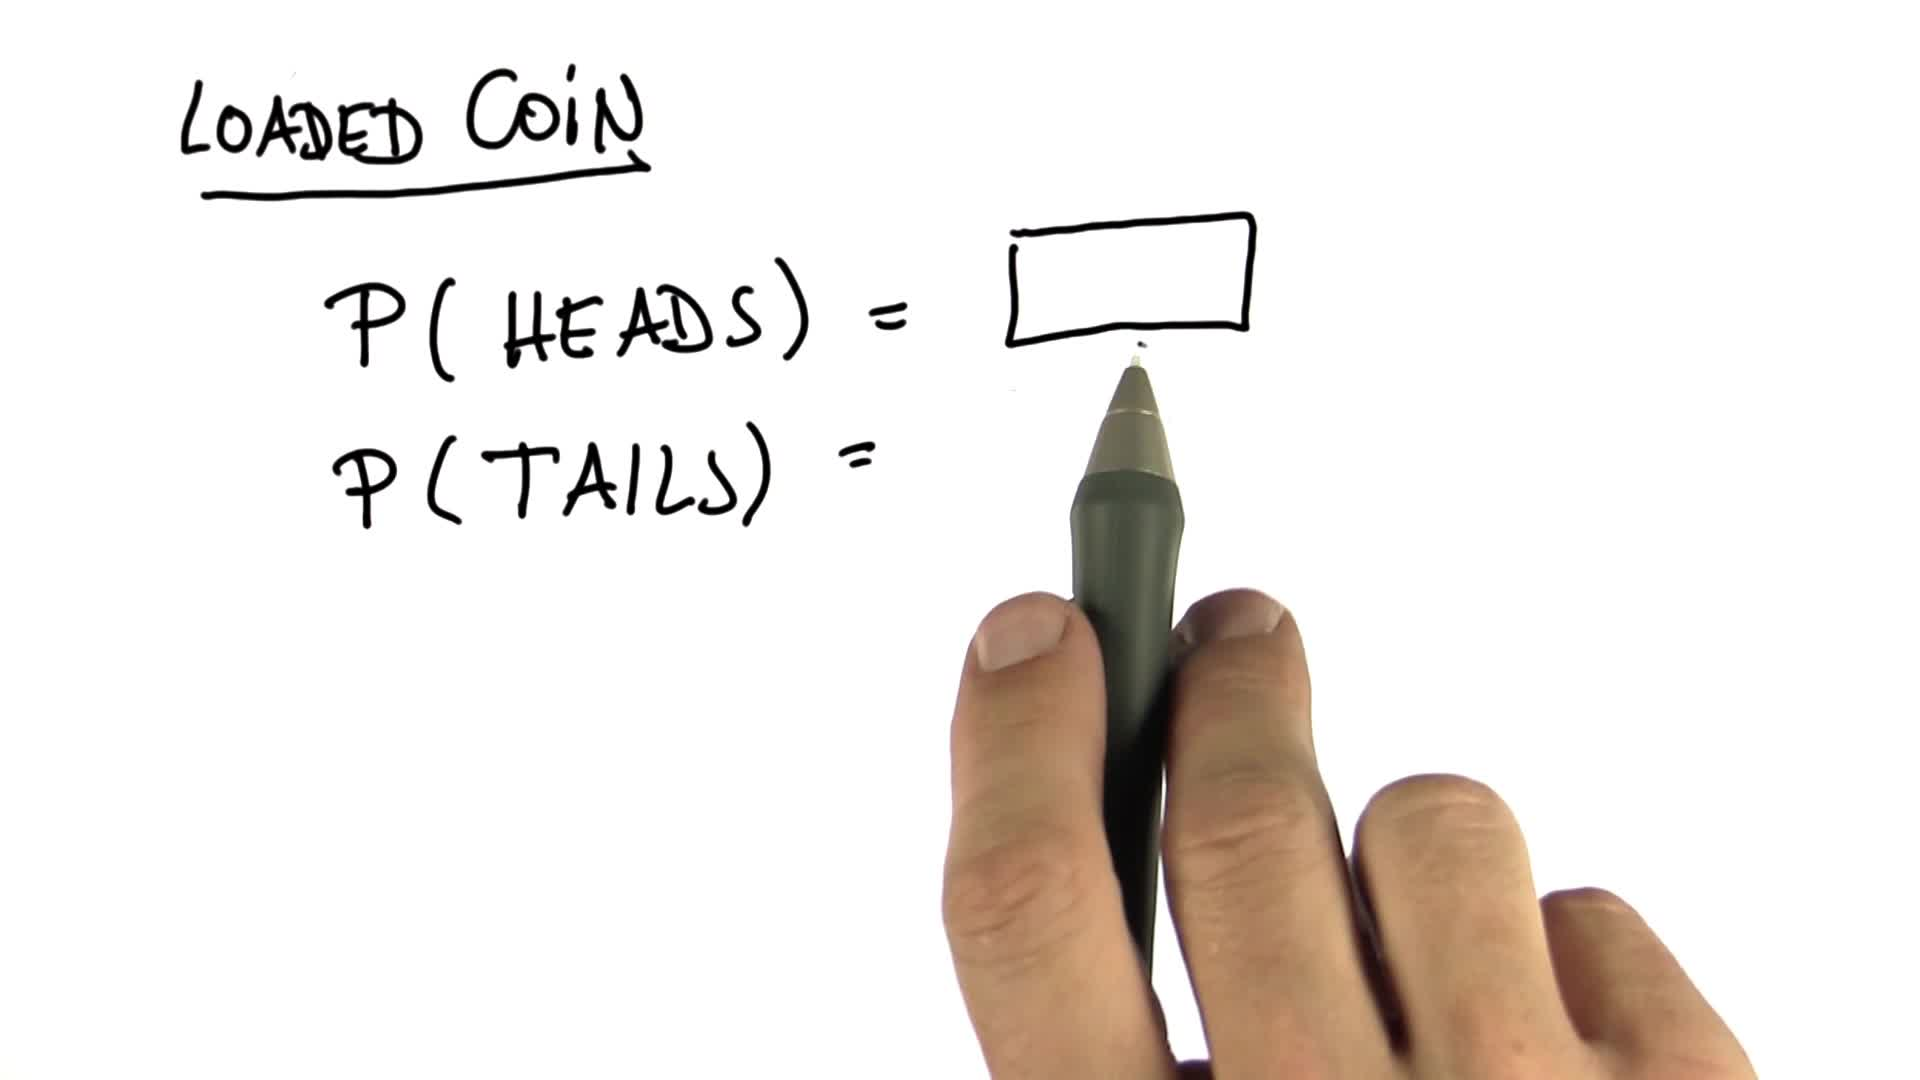 LOADED COIN
P(HEADS) =
P(TAILS) =